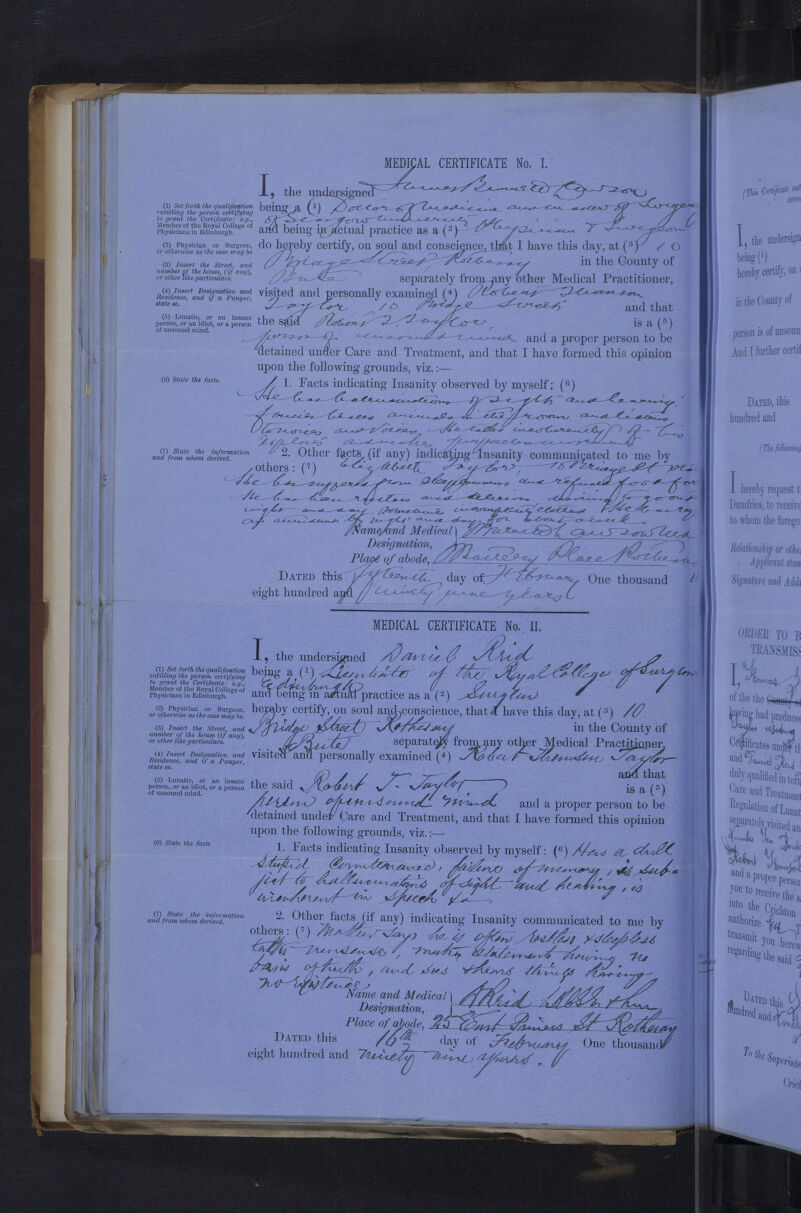 MEDICAL CERTIFICATE No. I.
I, the undersigned James Bennett Lawson
(1) Set forth the qualification
entitling the person certifying
to grant the Certificate: e.g.,
Member of the Royal College of
Physicians in Edinburgh.
being a (1) Doctor of Medicine and Master of Surgery
of Glasgow University
and being in actual practice as a (2) Physician & Surgeon
(2) Physician or Surgeon,
or otherwise as the case may be
do hereby certify, on soul and conscience, that I have this day, at (3) 10
(3) Insert the Street, and
number of the house, (if any),
or other like particulars.
Bridge Street Rothesay in the County of
Bute separately from any other Medical Practitioner,
(4) Insert Designation and
Residence, and if a Pauper,
state so.
visited and personally examined (4) Robert Thomson
Taylor, 10 Bridge Street and that
(5) Lunatic, or an insane
person, or an idiot, or a person
of unsound mind.
the said Robert T. Taylor is a (5)
person of unsound mind and a proper person to be
detained under Care and Treatment, and that I have formed this opinion
upon the following grounds, viz.:—
(6) State the facts.
1. Facts indicating Insanity observed by myself: (6)
He has hallucinations of sight and hearing.
fancies he sees animals in the room and listens
to noises and voices. He talks incoherently of his
(7) State the information
and from whom derived.
2. Other facts (if any) indicating Insanity communicated to me by
others: (7) Elizabeth Taylor, 10 Bridge St
He has suffered from sleeplessness and refused food for
He has been restless and delirious desiring to go out
night and day sometimes incompletely clothed
night and day for about a week
Name and Medical
Designation,
Place of abode, Battery Place Rothesay
DATED this fifteenth day of February One thousand
eight hundred and ninety nine years
MEDICAL CERTIFICATE No. II.
I, the undersigned Daniel Reid
(1) Set forth the qualification
entitling the person certifying
to grant the Certificate: e.g.,
Member of the Royal College of
Physicians in Edinburgh.
being a (1) Licentiate of the Royal College of Surgeons
Edinburgh
and being in actual practice as a (2) Surgeon
(2) Physician or Surgeon,
or otherwise as the case may be.
hereby certify, on soul and conscience, that I have this day, at (3) 10
(3) Insert the Street, and
number of the house (if any),
or other like particulars.
Bridge Street Rothesay in the County of
Bute separately from any other Medical Practitioner,
(4) Insert Designation and
Residence, and if a Pauper,
state so.
visited and personally examined (4) Robert Thomson Taylor
and that
(5) Lunatic, or an insane
person, or an idiot, or a person
of unsound mind.
the said Robert T. Taylor is a (5)
person of unsound mind and a proper person to be
detained under Care and Treatment, and that I have formed this opinion
upon the following grounds, viz.:—
(6) State the facts
1. Facts indicating Insanity observed by myself: (6) Has a dull
stupid countenance, failure of memory, is sub-
ject to hallucinations of sight and hearing, is
incoherent in speech &c
(7) State the information
and from whom derived.
2. Other facts (if any) indicating Insanity communicated to me by
others: (7) Mother says he is often restless & sleepless
talks nonsense, makes statements having no
basis of truth, and sees & hears things having
no existence.
Name and Medical
Designation, D Reid
Place of abode, 25 East Princes St Rothesay
DATED this 16th day of February One thousand
eight hundred and ninety nine years.
I, the undersign
being (1)
hereby certify, on
in the County of
person is of unsoun
And I further certif
DATED, this
hundred and
(The following
I hereby request t
Dumfries, to receive
to whom the forego
Relationship or othe
Applicant stan
Signature and Addr
ORDER TO B
TRANSMISS
I, Thomas
of the
having had produced
Certificates under th
and
duly qualified in ter
Care and Treatment
Regulation of Lunat
separately visited an
and a proper person
you to receive the s
into the Crichton
authorize
transmit you herew
regarding the said
DATED this
hundred and
To the Superinte
Crich